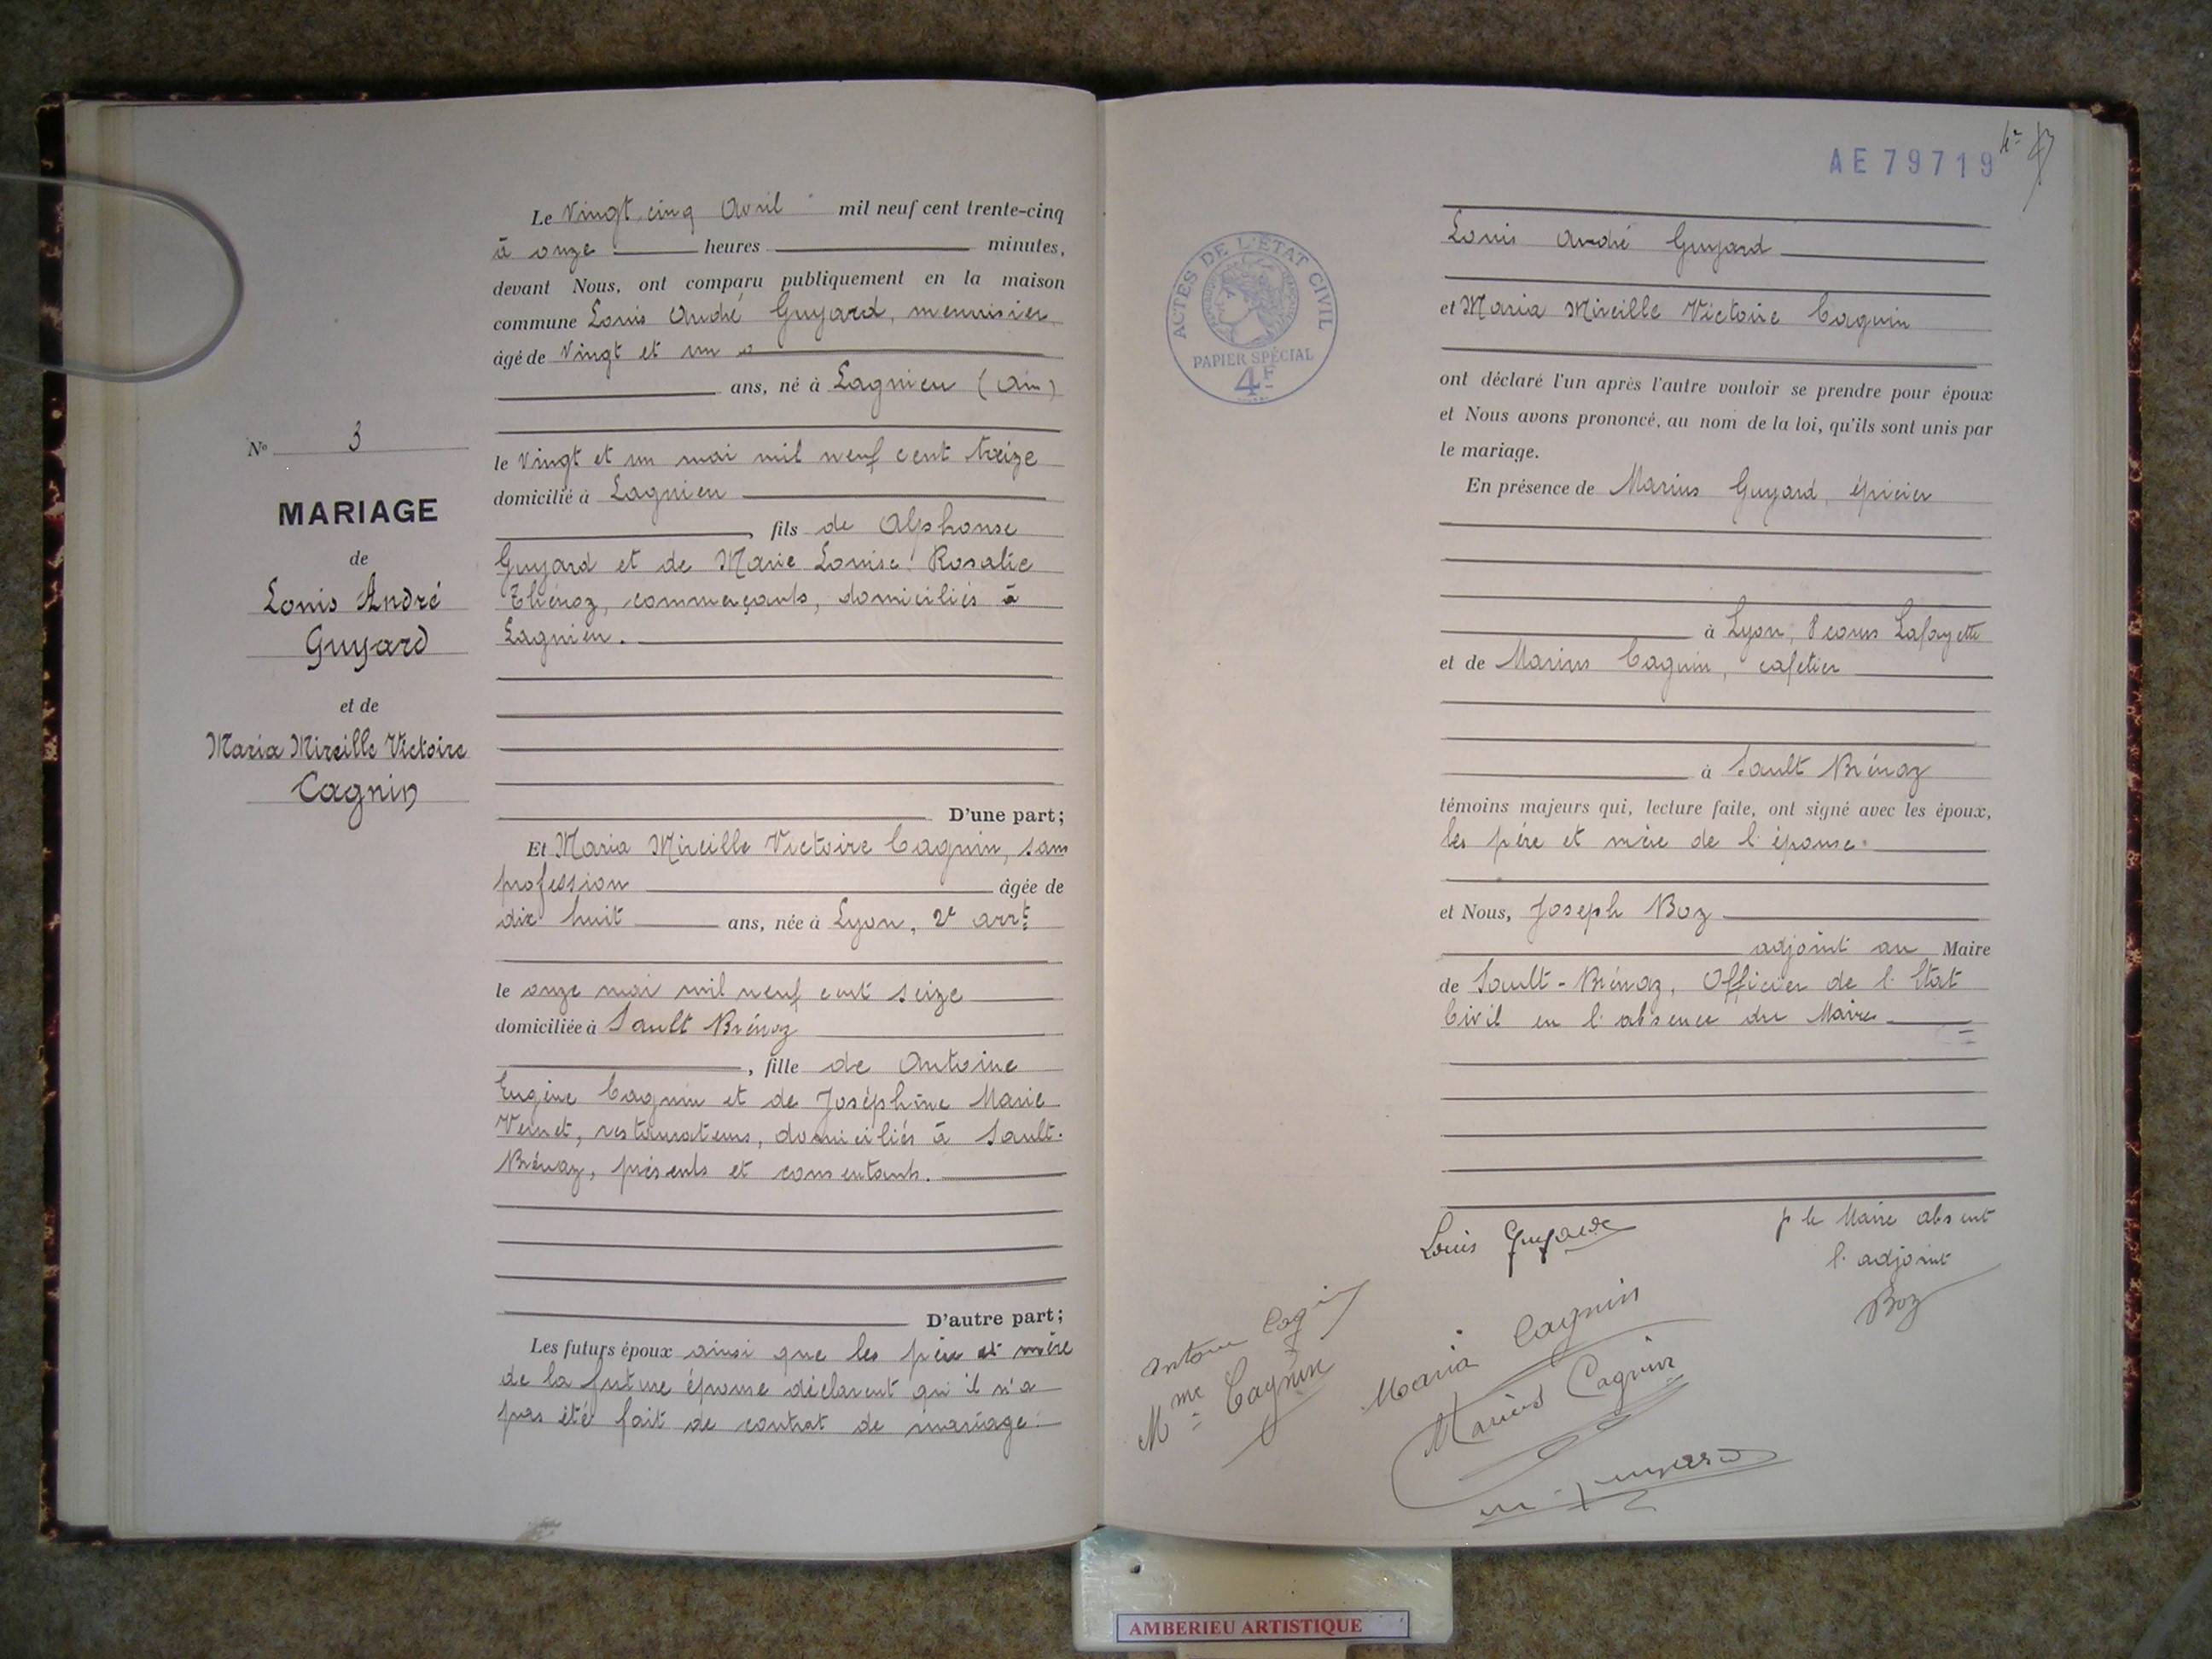 Le Vingt cinq Avril mil neuf cent trente-cinq
à onze heures minutes,
devant Nous, ont comparu publiquement en la maison
commune Louis André Guyard, menuisier
âgé de Vingt et un
ans, né à Lagnieu (Ain)
N° 3
le Vingt et un mai mil neuf cent treize
domicilié à Lagnieu
MARIAGE
de
Louis André
Guyard
et de
Maria Mireille Victoire
Cagnin
, fils de Alphonse
Guyard et de Marie Louise Rosalie
Thénoz, commerçants, domiciliés à
Lagnieu.
D'une part;
Et Maria Mireille Victoire Cagnin, sans
profession âgée de
dix huit ans, née à Lyon, 2e arrt
le onze mai mil neuf cent seize
domiciliée à Sault Brénaz
, fille de Antoine
Eugène Cagnin et de Joséphine Marie
Vernet, restaurateurs, domiciliés à Sault-
Brénaz, présents et consentants.
D'autre part;
Les futurs époux ainsi que les père et mère
de la future épouse déclarent qu'il n'a
pas été fait de contrat de mariage.
AE79719
ACTES DE L'ÉTAT CIVIL
PAPIER SPÉCIAL
4F
Louis André Guyard
et Maria Mireille Victoire Cagnin
ont déclaré l'un après l'autre vouloir se prendre pour époux
et Nous avons prononcé, au nom de la loi, qu'ils sont unis par
le mariage.
En présence de Marius Guyard, épicier
à Lyon, 8 cours Lafayette
et de Marius Cagnin, cafetier
à Sault Brénaz
témoins majeurs qui, lecture faite, ont signé avec les époux,
les père et mère de l'épouse.
et Nous, Joseph Boz
adjoint au Maire
de Sault-Brénaz, Officier de l'Etat
Civil en l'absence du Maire
Louis Guyard
p le Maire absent
l'adjoint
Boz
Antoine Cagnin
Mme Cagnin
Maria Cagnin
Marius Cagnin
m. guyard
AMBERIEU ARTISTIQUE